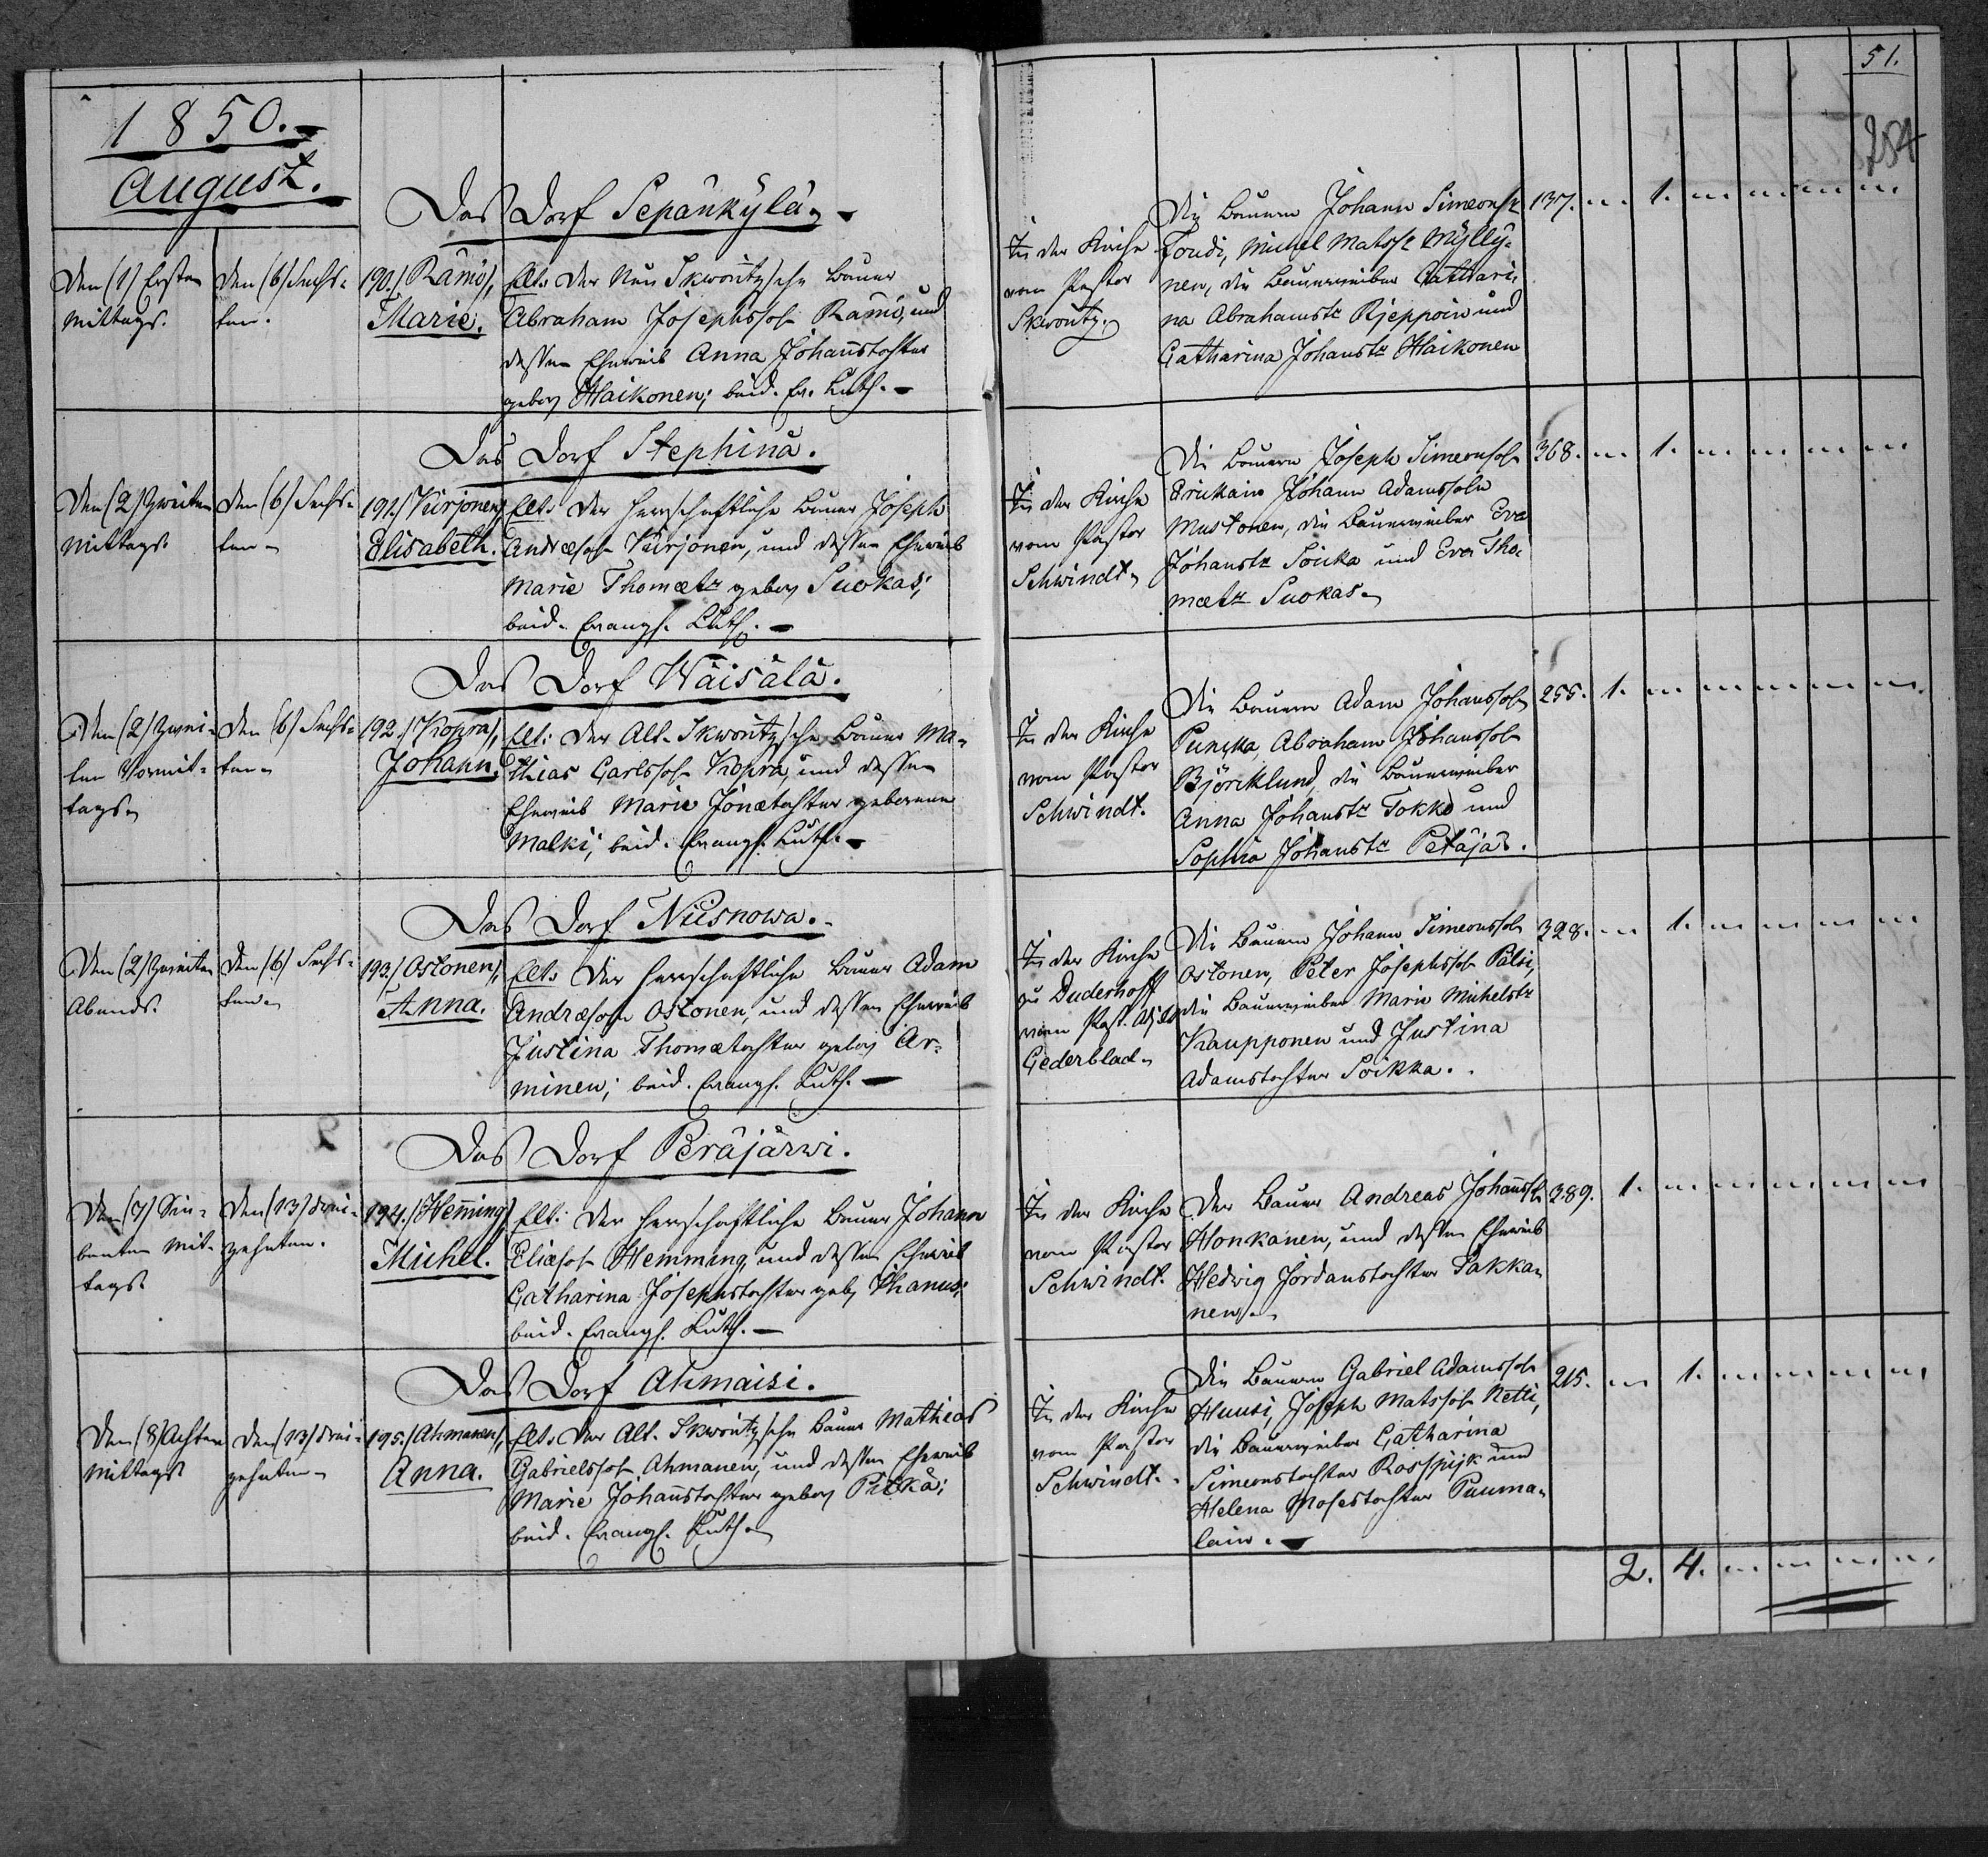 51.
254
1850.
August.
Das Dorf Sepänkylä.
Den (1) Ersten
Mittags.
Den (6) Sechs-
ten.
190./ Rämö/,
Marie.
Elt. Der Neu Skworitzsche Bauer
Abraham Josephssohn Rämö, und
dessen Eheweib Anna Johannstochter
gebor Haikonen; beid. Ev. Luth.
In der Kirche
vom Pastor
Skworitz.
Die Bauern Johann Simeonss
Toudi, Michel Matss Mylly-
nen, die Bauerweiber Cathari-
na Abrahamstr Rjeppoin und
Catharina Johanstr Haikonen
137. 1.
Das Dorf Stephinä.
Den (2) Zweiten
Mittags
Den (6) Sechs-
ten
191./ Kirjonen/
Elisabeth.
Elt. Der herrschaftliche Bauer Joseph
Andreassohn Kirjonen, und dessen Eheweib
Marie Thomaetr gebor Suokas;
beid. Evangl. Luth.
In der Kirche
vom Pastor
Schwindt.
Die Bauern Joseph Simeonsohn
Johann Adamssohn
Mustonen, die Bauerweiber Eva
Johanstr Soicka und Eva Tho-
maetr Suokas.
368. 1.
Das Dorf Wäisälä.
Den (2) Zwei-
ten Vormit-
tags
Den (6) Sechs-
ten
192./ Kopra/,
Johann.
Elt: Der Alt-Skworitzsche Bauer Ma-
thias Carlssohn Kopra, und dessen
Eheweib Marie Jonaetochter geborene
Malki; beid. Evangl. Luth.
In der Kirche
vom Pastor
Schwindt.
Die Bauern Adam Johanssohn
Punska, Abraham Johanssohn
Björcklund, die Bauerweiber
Anna Johanstr Tokko und
Sophia Johanstr Petäjäs.
255. 1.
Das Dorf Nusnowa.
Den (2) Zweiten
Abends.
Den (6) Sechs-
ten
193./ Ostonen/,
Anna.
Elt. Der herrschaftliche Bauer Adam
Andreaesohn Ostonen, und dessen Eheweib
Justina Thomaetochter gebor Ar-
minen; beid. Evangl. Luth.
In der Kirche
zu Duderhoff
vom Past. Adj.
Cederblad.
Die Bauern Johann Simeonssohn
Ostonen, Peter Josephssohn Pälsi,
die Bauerweiber Marie Michelstr
Kaupponen und Justina
Adamstochter Soikka.
328. 1.
Das Dorf Peräjärwi.
Den (7) Sie-
benten Mit-
tags
Den (13) Drei-
zehnten.
194./ Hem̄ing/
Michel.
Elt: Der herrschaftliche Bauer Johann
Eliaesohn Hemming, und dessen Eheweib
Catharina Josephstochter geb Ihanus;
beid. Evangl. Luth.
In der Kirche
vom Pastor
Schwindt.
Der Bauer Andreas Johanss
Honkanen, und dessen Eheweib
Hedwig Jordanstochter Pakka-
nen.
389. 1.
Das Dorf Ahmaisi.
Den (8) Achten
Mittags
Den (13) Drei-
zehnten
195./ Ahmanen/,
Anna.
Elt. Der Alt-Skworitzsche Bauer Mathias
Gabrielssohn Ahmanen, und dessen Eheweib
Marie Johannstochter gebor Pitkä;
beid. Evangl. Luth.
In der Kirche
vom Pastor
Schwindt.
Die Bauern Gabriel Adamssohn
Huusi, Joseph Matssohn Netti,
die Bauerweiber Catharina
Simeonstochter Rosspijk und
Helena Mosestochter Puuma-
lain.
215. 1.
2. 4.